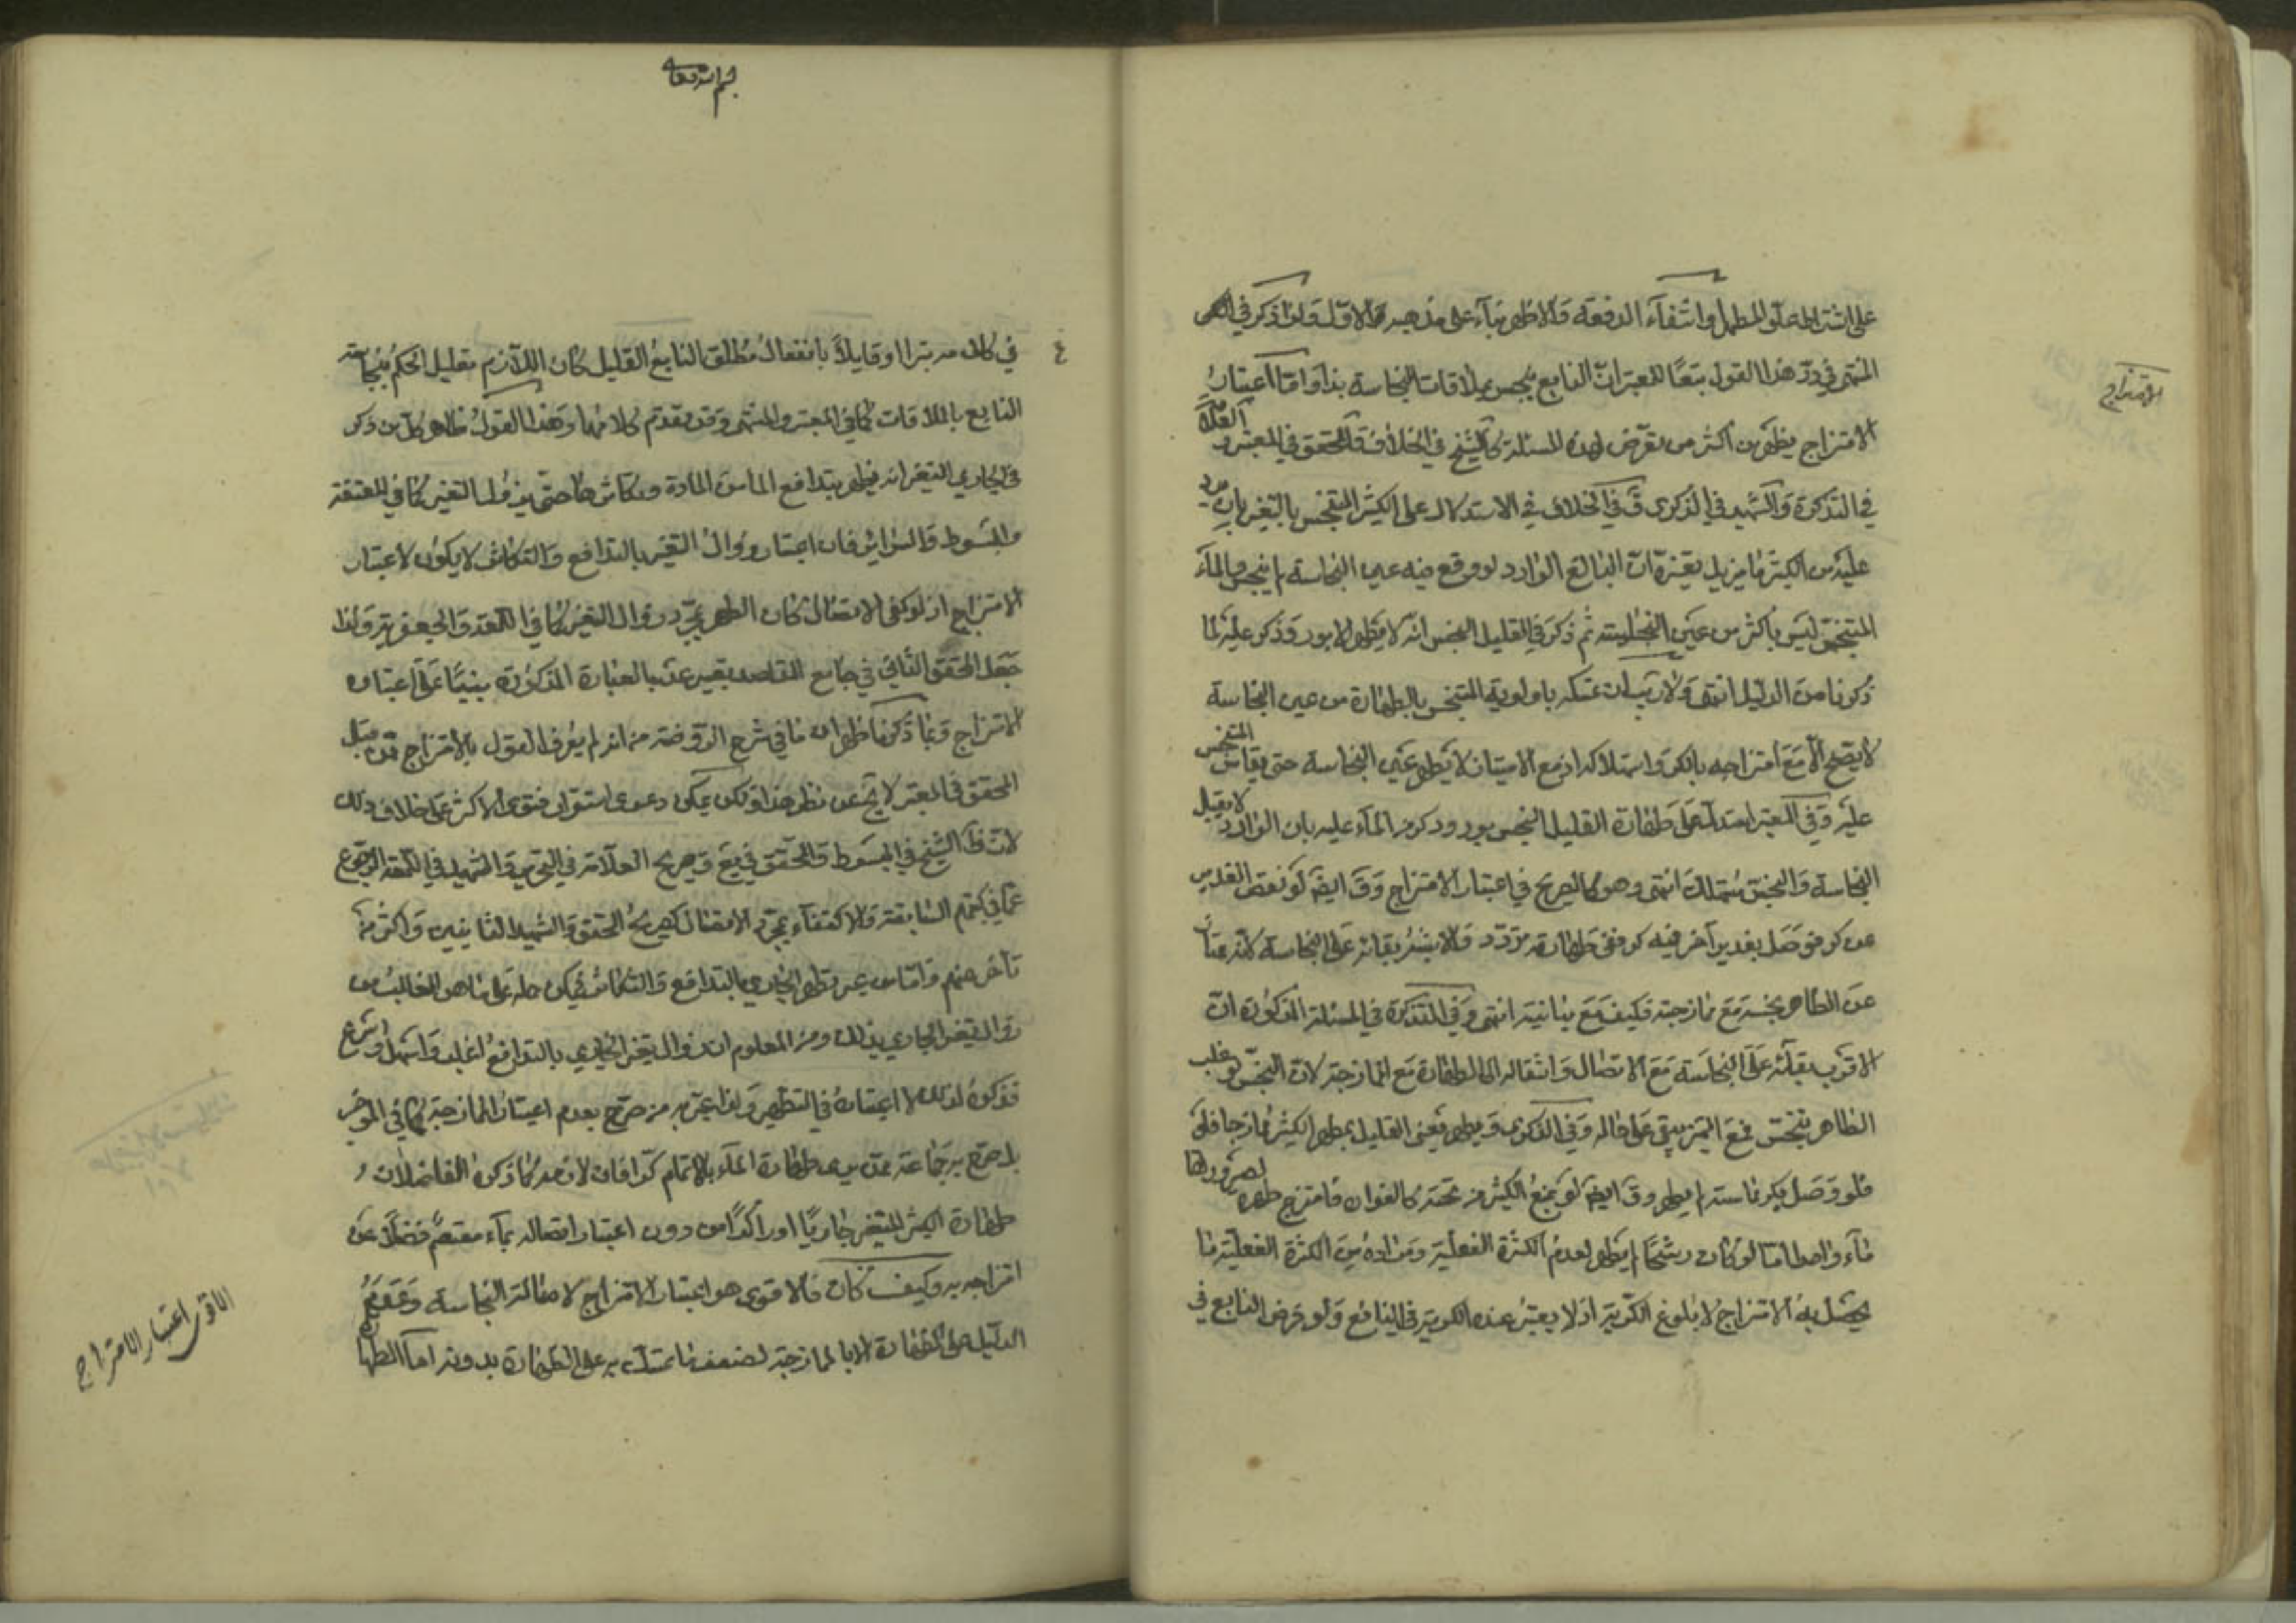 على اشتراط علو المطهر وانتفاء الدفعة والاظهر بناء على مذهبه هو الاول ولذا ذكر في
المنتهى في رد هذا القول تبعا للمعتبر ان النابع ينجس بملاقات النجاسة بدا واما اعتبار
الامتزاج
الامتزاج فيظهر من اكثر من تعرض لهذه المسئلة كالشيخ في الخلاف والمحقق في المعتبر و العلامة
في التذكرة والشهيد في الذكرى ففي الخلاف في الاستدلال على الكثير المتنجس بالتغير بان يرد
عليه من الكثير ما يزيل تغيره ان البالغ الوارد لو وقع فيه عين النجاسة لم ينجس والماء
المتنجس ليس باكثر من عين النجاسة ثم ذكر في القليل النجس انه لا يطهر الا بورود كر عليه لما
ذكرنا من الدليل انتهى ولا ريب ان تمسكه باولوية المتنجس بالطهارة من عين النجاسة
لا يصح الا مع امتزاجه بالكر واستهلاكه اذ مع الامتياز لا يطهر عين النجاسة حتى يقاس المتنجس
عليه وفي المعتبر استدل على طهارة القليل النجس بورود كر من الماء عليه بان الوارد لا يقبل
النجاسة والنجس مستهلك انتهى وهو كالصريح في اعتبار الامتزاج وقال ايضا لو نقص الغدير
عن كر فوصل بغدير آخر فيه كر ففي طهارته تردد والاشبه بقائه على النجاسة لانه ممتاز
عن الطاهر نجسه مع ممازجته فكيف مع مباينته انتهى وفي التذكرة في المسئلة المذكورة ان
الاقرب بقائه على النجاسة مع الاتصال وانتقاله الى الطهارة مع الممازجة لان النجس لو غلب
الطاهر ينجس فمع التميز يبقى على حاله وفي الذكرى ويطهر يعنى القليل بمطهر الكثير ممازجا فلو
فلو وصل بكر مماسة لم يطهر وقال ايضا لو نبع الكثير من تحته كالفوران فامتزج طهره لصيرورتهما
ماء واحدا اما لو كان رشحا لم يطهر لعدم الكثرة الفعلية ومراده من الكثرة الفعلية ما
يحصل به الامتزاج لا بلوغ الكرية اذ لا يعتبر عنده الكرية في النابع ولو فرض النابع في
بسم الله تعالى
في كلامه بترا او قايلا بانفعال مطلق النابع القليل كان اللازم تعليل الحكم بنجاسة
النابع بالملاقات كما في المعتبر والمنتهى وقد تقدم كلامهما وهذا القول ظاهر كل من ذكر
في الجاري المتغير انه يطهر بتدافع الماء من المادة وتكاثرها حتى يزول التغير كما في المقنعة
والمبسوط والسرائر فان اعتبار زوال التغير بالتدافع والتكاثر لا يكون الا اعتبار
الامتزاج اذ لو كفى الاتصال كان الطهر بمجرد زوال التغير كما في اللمعة والجعفرية ولذا
جعل المحقق الثاني في جامع المقاصد تعبير عن بالعبارة المذكورة مبنيا على اعتبار
الامتزاج ومما ذكرنا ظهر ان ما في شرح الروضة من انه لم يعرف القول بالامتزاج ممن قبل
المحقق في المعتبر لا يخ عن نظر هذا ولكن يمكن دعوى استقرار فتوى الاكثر على خلاف ذلك
لان ظ الشيخ في المبسوط والمحقق في يع وصريح العلامة في التحرير والشهيد في اللمعة الرجوع
عما في كتبهم السابقة والاكتفاء بمجرد الاتصال كصريح المحقق والشهيد الثانيين واكثر من
تأخر عنهم واما من عبر بتطهر الجاري بالتدافع والتكاثر فيمكن حمله على ما هو الغالب من
زوال تغير الجاري بذلك ومن المعلوم ان زوال تغير الجاري بالتدافع اغلب واسهل واسرع
فذكروه لذلك لا اعتباره في التطهير ولذا عبر به من صرح بعدم اعتبار الممازجة كما في الموجز
بل صرح به جماعة ممن يرى طهارة الماء بالاتمام كرا فان لازمه كما ذكره الفاضلان
طهارة الكثير المتغير جاريا او راكدا من دون اعتبار اتصاله بماء معتصم فضلا عن
امتزاجه به وكيف كان فالاقوى هو اعتبار الامتزاج لاصالة النجاسة وعدم
الدليل على الطهارة الا بالممازجة لضعف ما تمسك به على الطهارة بدونه اما
الاقوى اعتبار الامتزاج